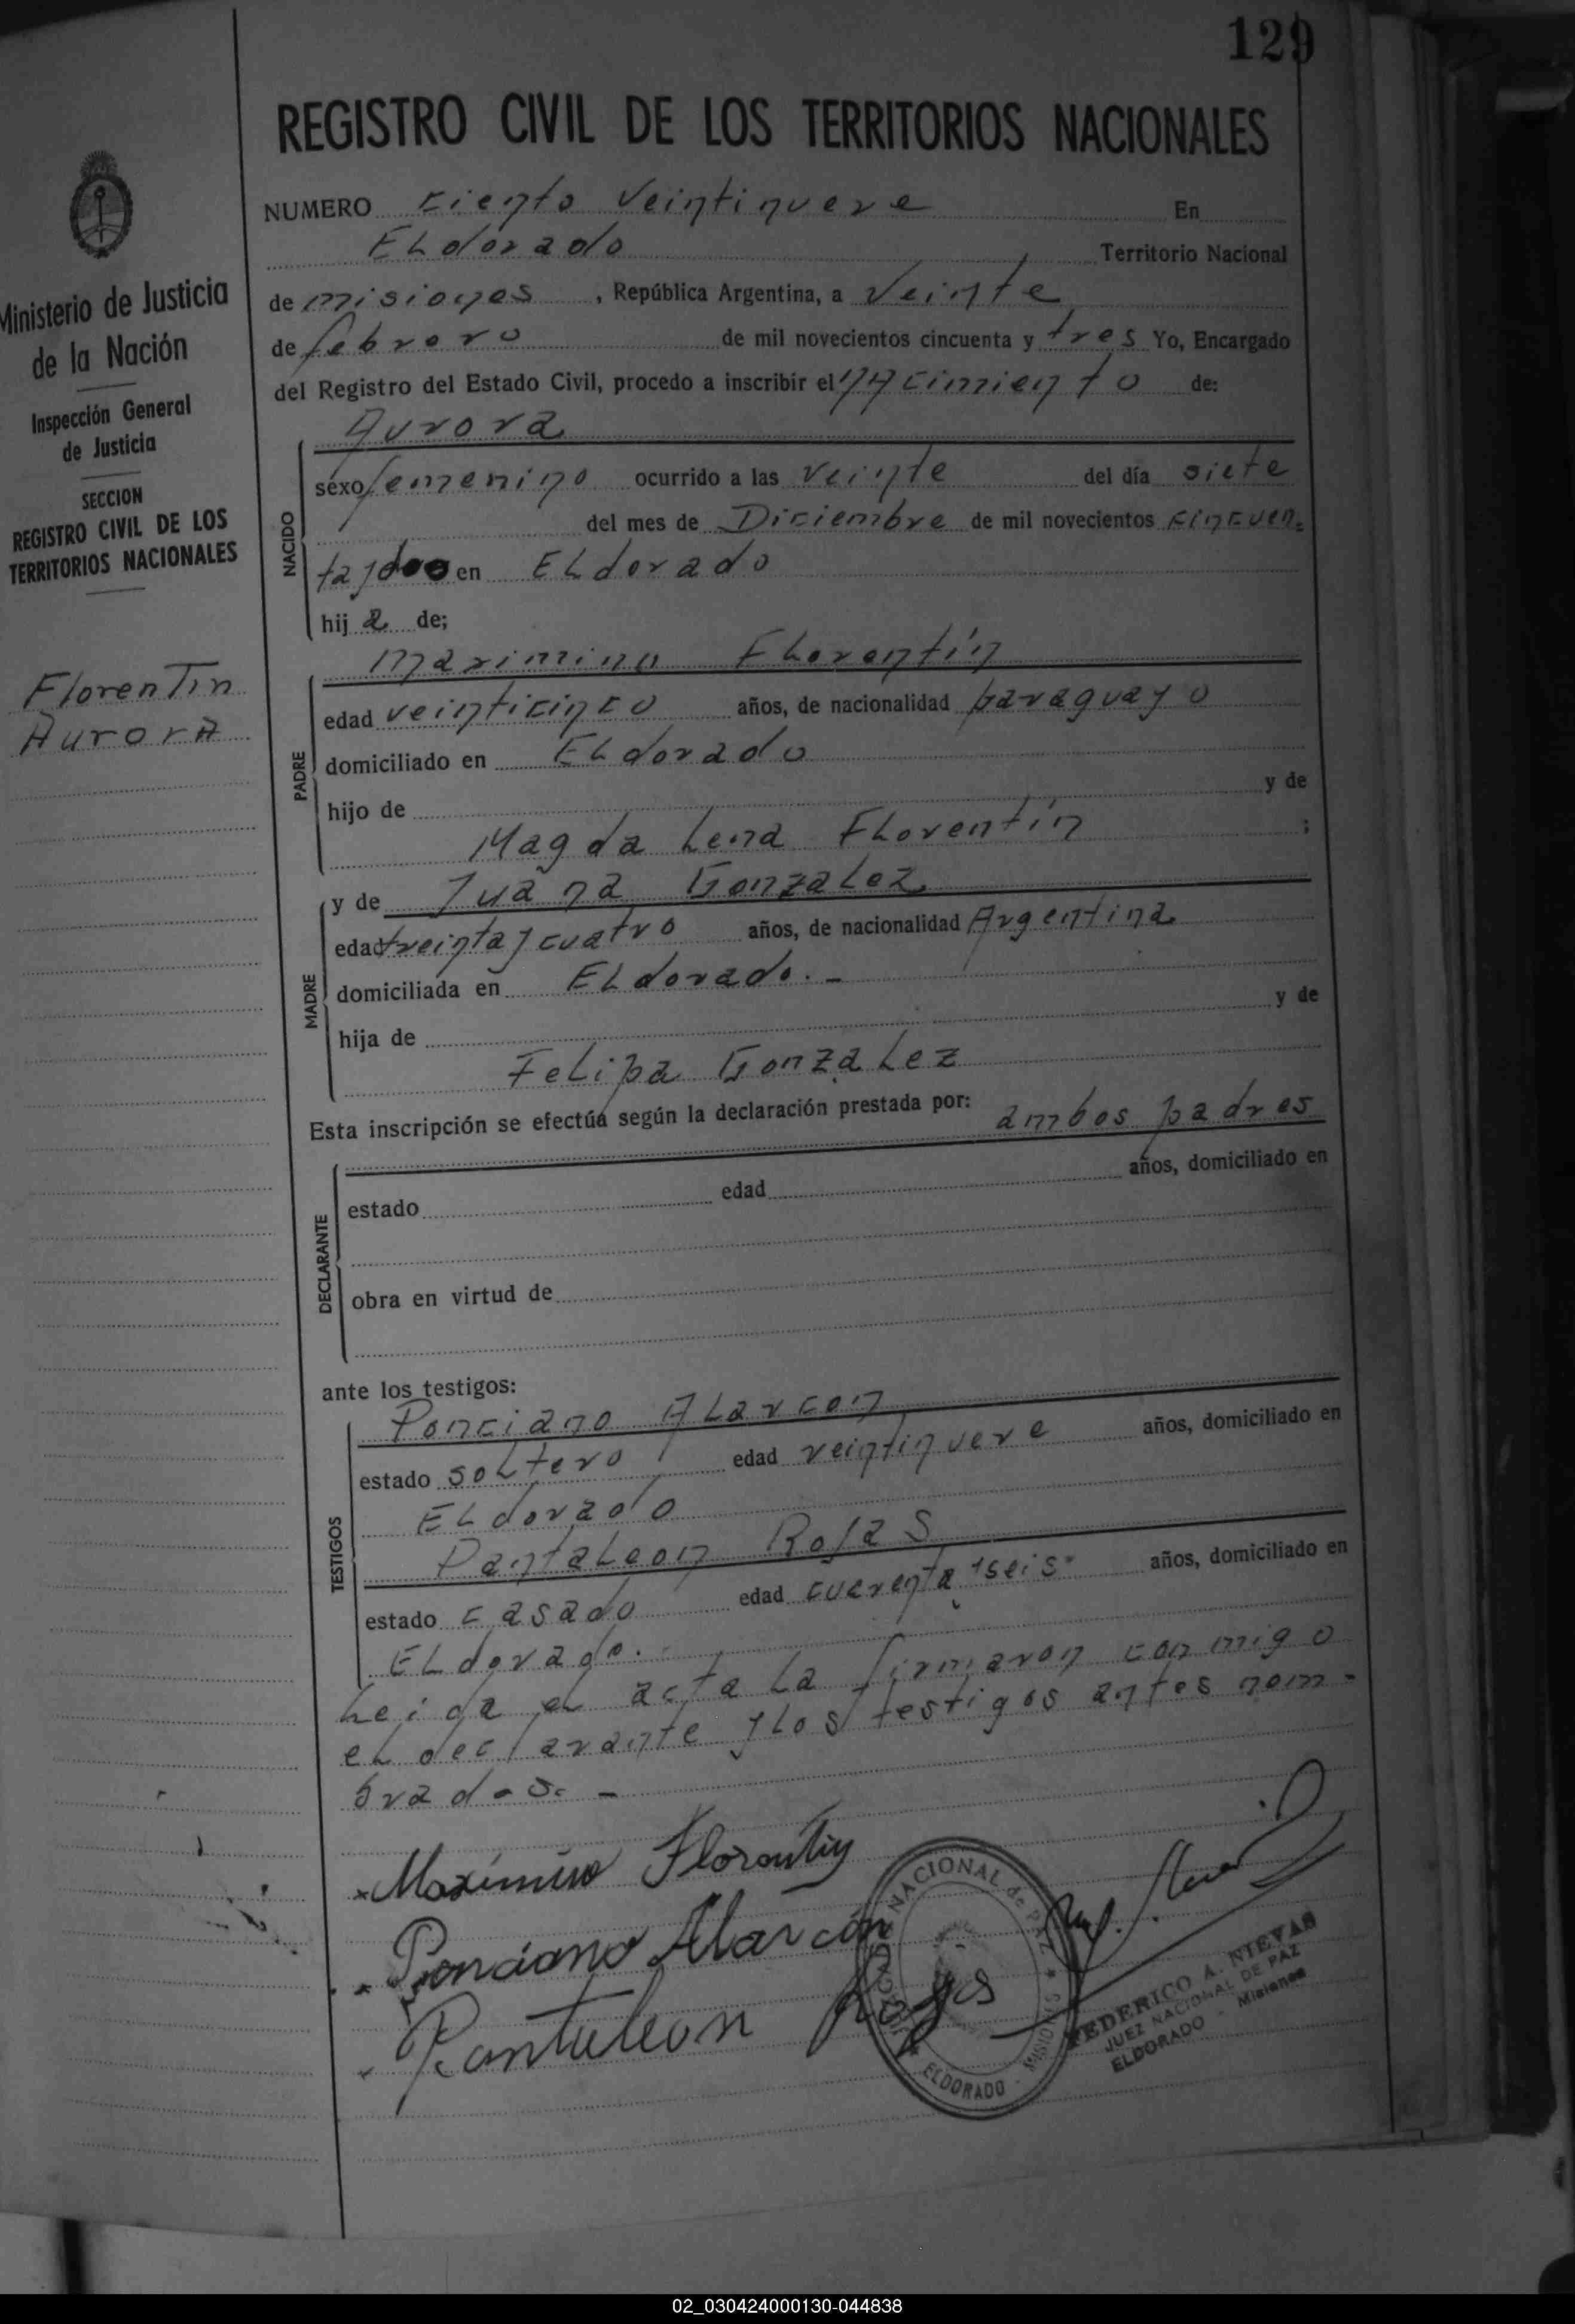 129
REGISTRO CIVIL DE LOS TERRITORIOS NACIONALES
Ministerio de Justicia
de la Nación
Inspección General
de Justicia
SECCION
REGISTRO CIVIL DE LOS
TERRITORIOS NACIONALES
Florentin
Aurora
NUMERO ciento veintinueve En
ELdorado Territorio Nacional
de misiones, República Argentina, a veinte
de febrero de mil novecientos cincuenta y tres Yo, Encargado
del Registro del Estado Civil, procedo a inscribir el nacimiento de:
Aurora
NACIDO
sexo femenino ocurrido a las veinte del día siete
del mes de Diciembre de mil novecientos cincuen=
ta y dos en ELdorado
hij a de;
maximino Florentín
PADRE
edad veinticinco años, de nacionalidad paraguayo
domiciliado en ELdorado
hijo de y de
Magda Lena Florentín ;
MADRE
y de Juana Gonzalez
edad treinta y cuatro años, de nacionalidad Argentina
domiciliada en ELdorado. -
hija de y de
Felipa Gonzalez
Esta inscripción se efectúa según la declaración prestada por: ambos padres
DECLARANTE
estado edad años, domiciliado en
obra en virtud de
ante los testigos:
TESTIGOS
Ponciano Alarcon
estado soltero edad veintinueve años, domiciliado en
ELdorado
Pantaleon Rojas
estado casado edad cuarenta y seis años, domiciliado en
ELdorado.
Leida el acta la firmaron conmigo
el declarante y los testigos antes nom-
brados. -
Maximino Florentin
Ponciano Alarcón
Pantaleon Rojas
NACIONAL de PAZ
ELDORADO - MISIONES
FEDERICO A. NIEVAS
JUEZ NACIONAL DE PAZ
ELDORADO - Misiones
02_030424000130-044838